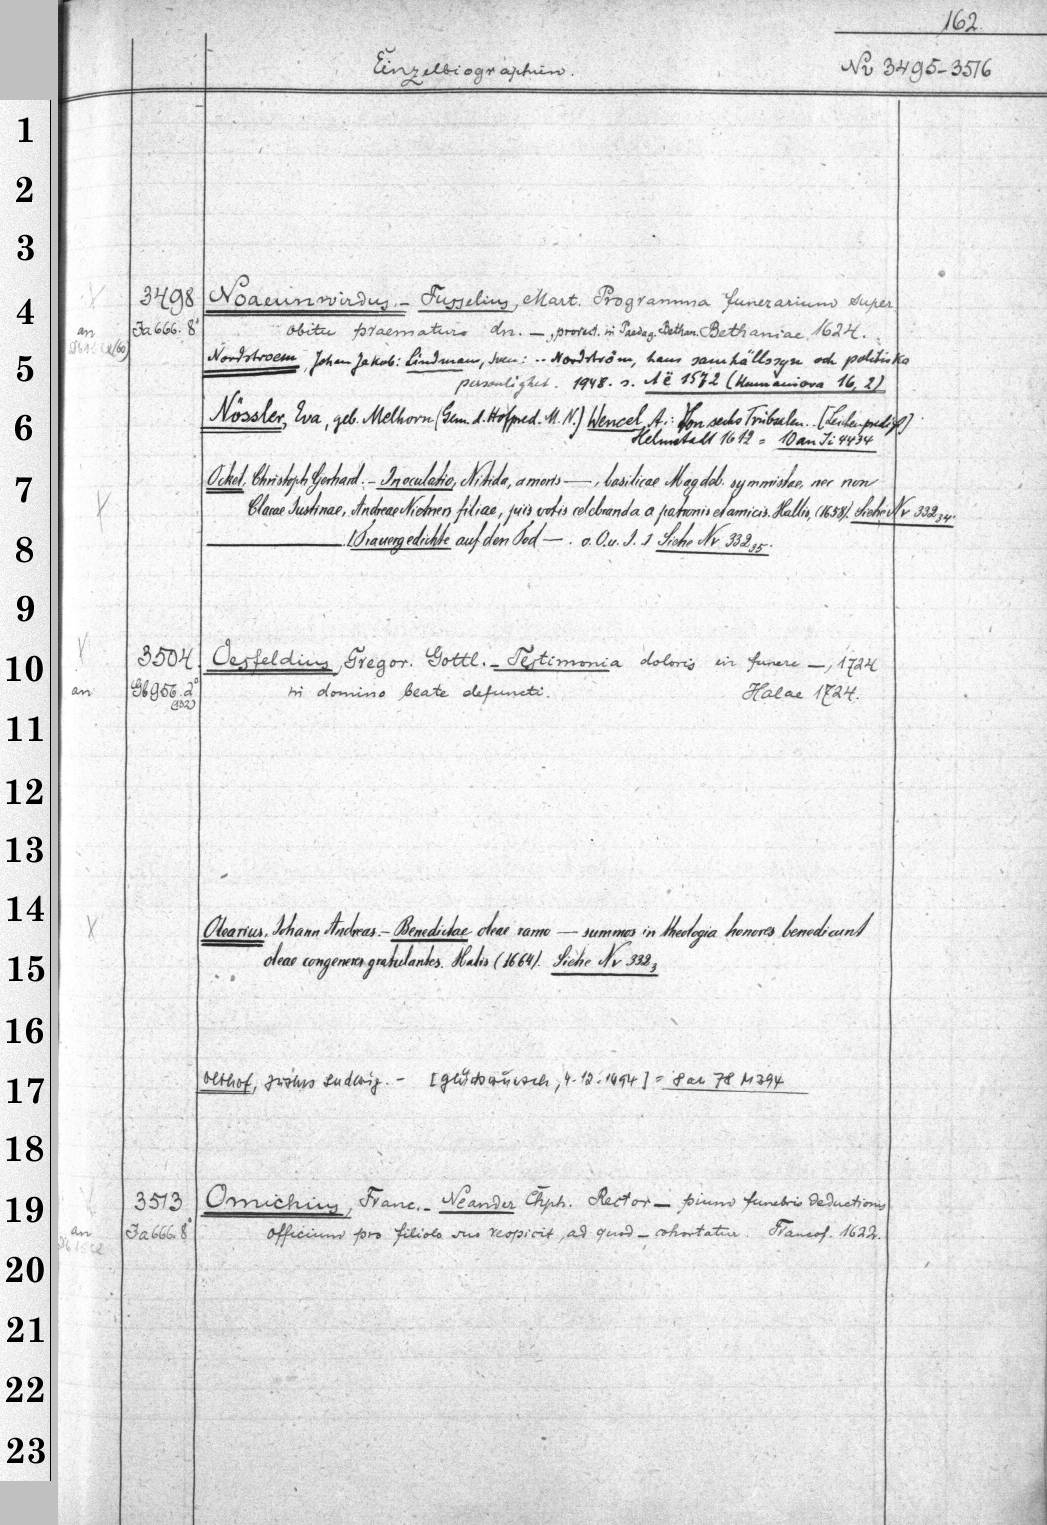 162.
Einzelbiographien.
Nr 3495-3516
3498 Noaeunwirdus. – Fusselius, Mart. Programma funerarium super
an Ja 666. 8° obitu praematuro dn. —, prorect. in Paedag. Bethan. Bethaniae. 1624.
Nordstroem, Johan Jakob: Lindman, Sven: .. Nordström, hans samhällssyn och politiska
personlighet. 1948. s. Aë 1572 (Humaniora 16, 2)
Nössler, Eva, geb. Melhorn (Gem. d. Hofpred. M. N.) Wencel, A.: Von sechs Trübsalen.. [Leichenpredigt]
Helmstadt 1612 = 10 an Ji 4434
Ockel, Christoph Gerhard. – Inoculatio, Nitida, amoris —, basilicae Magdeb. symmistae, nec non
Clarae Justinae, Andreae Niehners filiae, piis votis celebranda a patronis et amicis. Hallis, (1658). Siehe Nr 332 34.
— . Trauergedichte auf den Tod — . o. O. u. J. Siehe Nr 332 35.
3504. Oesfeldius, Gregor. Gottl. – Testimonia doloris in funere —, 1724
an Gb 956. 2° in domino beate defuncti. Halae 1724.
(332)
Olearius, Johann Andreas. – Benedictae oleae ramo — summos in theologia honores benedicunt
oleae congeneres gratulantes. Halis (1664). Siehe Nr 332 3
Olthof, Ludwig. – [Glückwunsch, 4.12.1694] = 8 an 78 M 394
3513 Omichius, Franc. – Neander Chph. Rector — pium funebris deductionis
an Ja 666. 8° officium pro filiolo suo respicit, ad quod — cohortatur. Francof. 1622.
1
2
3
4
5
6
7
8
9
10
11
12
13
14
15
16
17
18
19
20
21
22
23